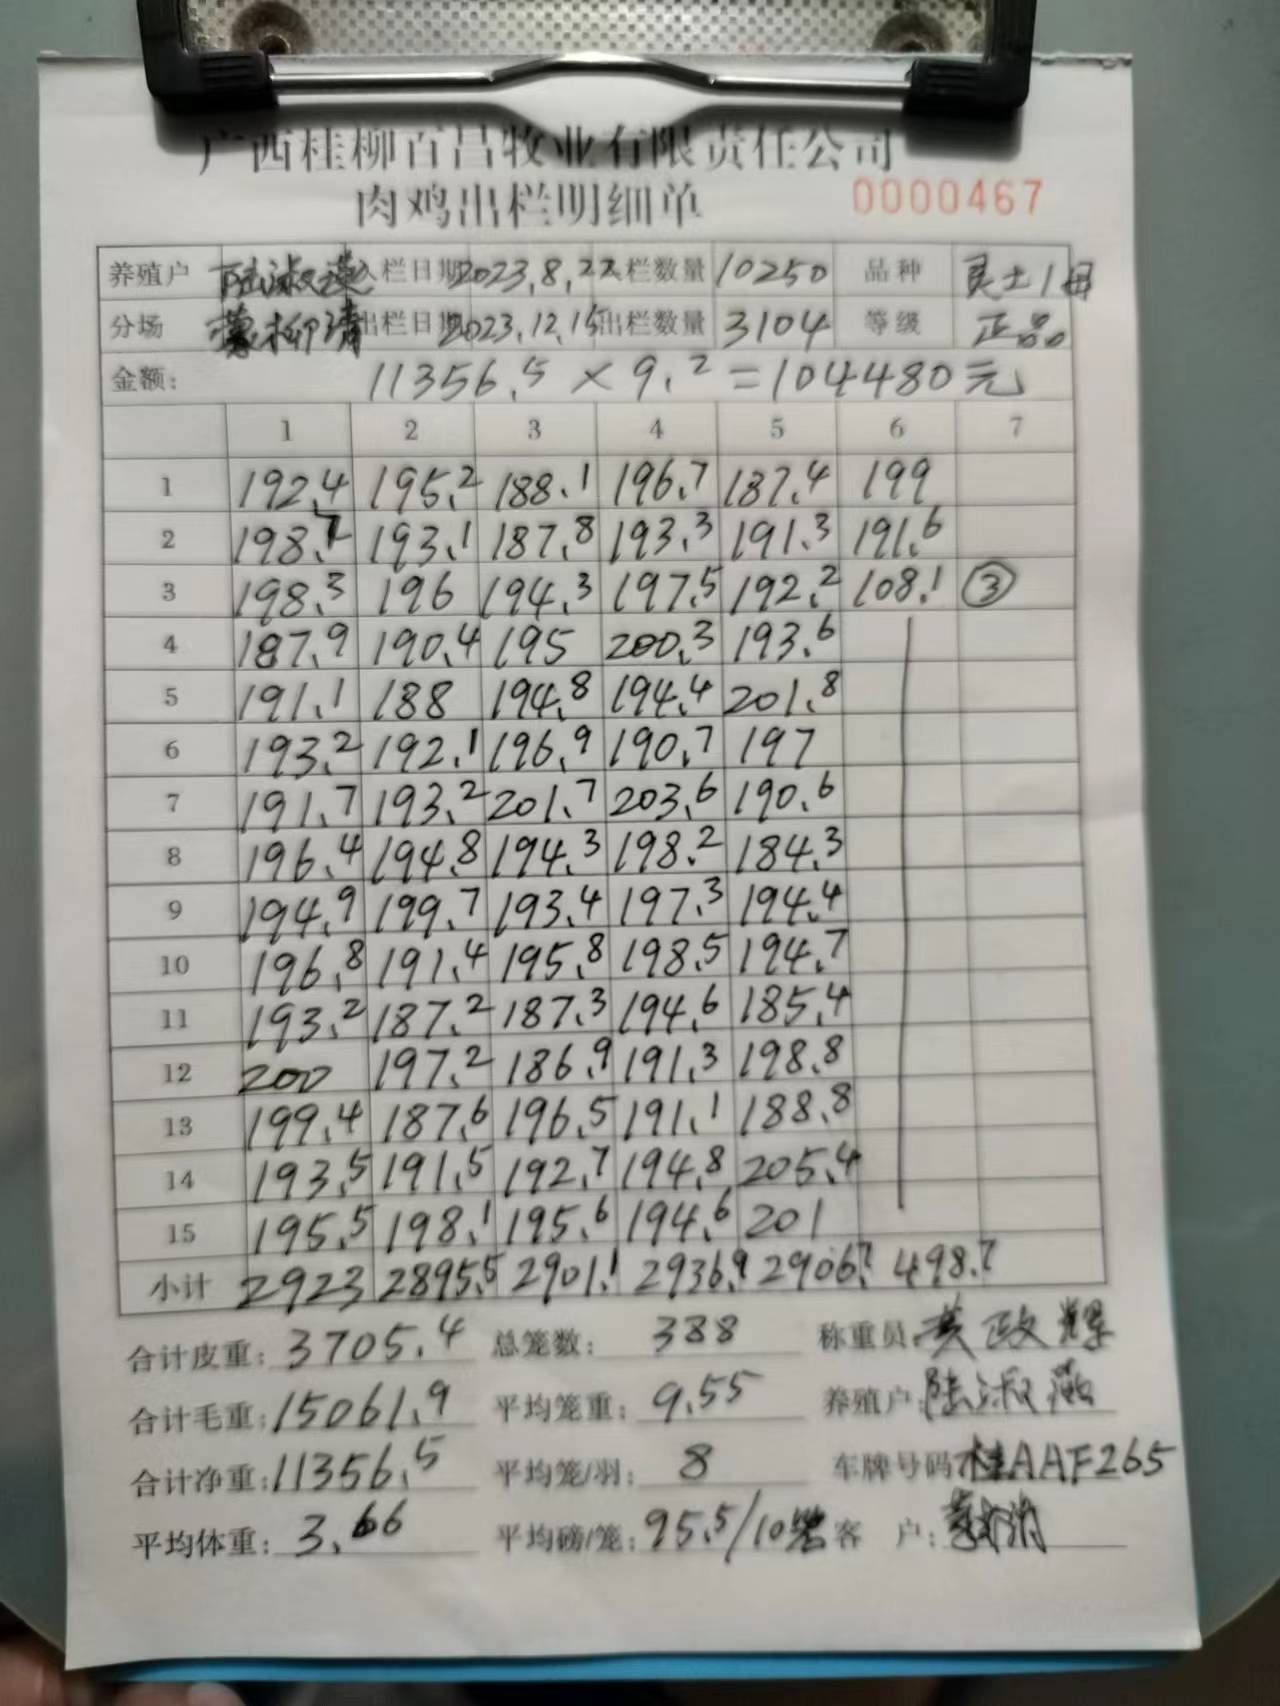 广西桂柳百昌牧业有限责任公司
肉鸡出栏明细单 0000467
养殖户 陆淑燕 入栏日期 2023.8.22 入栏数量 10250 品种 灵土1母
分场 出栏日期 2023.12.15 出栏数量 3104 等级 正品
金额: 11356.5 × 9.2 = 104480元
1 2 3 4 5 6 7
1 192.4 195.2 188.1 196.7 187.4 199
2 198.7 193.1 187.8 193.3 191.3 191.6
3 198.3 196 194.3 197.5 192.2 108.1 ③
4 187.9 190.4 195 200.3 193.6
5 191.1 188 194.8 194.4 201.8
6 193.2 192.1 196.9 190.7 197
7 191.7 193.2 201.7 203.6 190.6
8 196.4 194.8 194.3 198.2 184.3
9 194.9 199.7 193.4 197.3 194.4
10 196.8 191.4 195.8 198.5 194.7
11 193.2 187.2 187.3 194.6 185.4
12 200 197.2 186.9 191.3 198.8
13 199.4 187.6 196.5 191.1 188.8
14 193.5 191.5 192.7 194.8 205.4
15 195.5 198.1 195.6 194.6 201
小计 2923 2895.5 2901.1 2936.9 2906.7 498.7
合计皮重: 3705.4 总笼数: 388 称重员: 黄政辉
合计毛重: 15061.9 平均笼重: 9.55 养殖户: 陆淑燕
合计净重: 11356.5 平均笼/羽: 8 车牌号码 桂AAF265
平均体重: 3.66 平均磅/笼: 95.5/10笼 客 户: